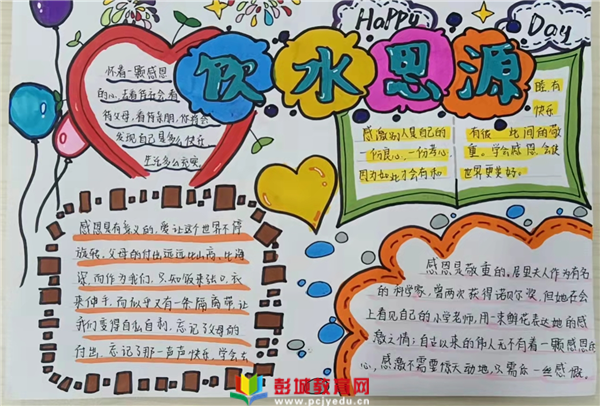 Happy Day
饮水思源
怀着一颗感恩
的心,去看待社会,看
待父母,看待亲朋,你将会
发现自己是多么快乐
感激别人是自己的
一份良心,一份孝心,
因为如此才会有和
睦,有
快乐
有彼此间的敬
重。学会感恩,会使
世界更美好。
感恩是有意义的。爱让这个世界不停
旋转。父母的付出远远比山高,比海
深,而作为我们,只知饭来张口,衣
来伸手。而似乎又有一条隔离带,让
我们变得自私自利,忘记了父母的
付出,忘记了那一声声快乐,学会去
感恩是敬重的。居里夫人作为有名
的科学家,曾两次获得诺贝尔奖,但她在会
上看见自己的小学老师,用一束鲜花表达她的感
激之情;自古以来的伟人无不有着一颗感恩的
心,感激不需要惊天动地,只需你一丝感激
彭城教育网
www.pcjyedu.cn